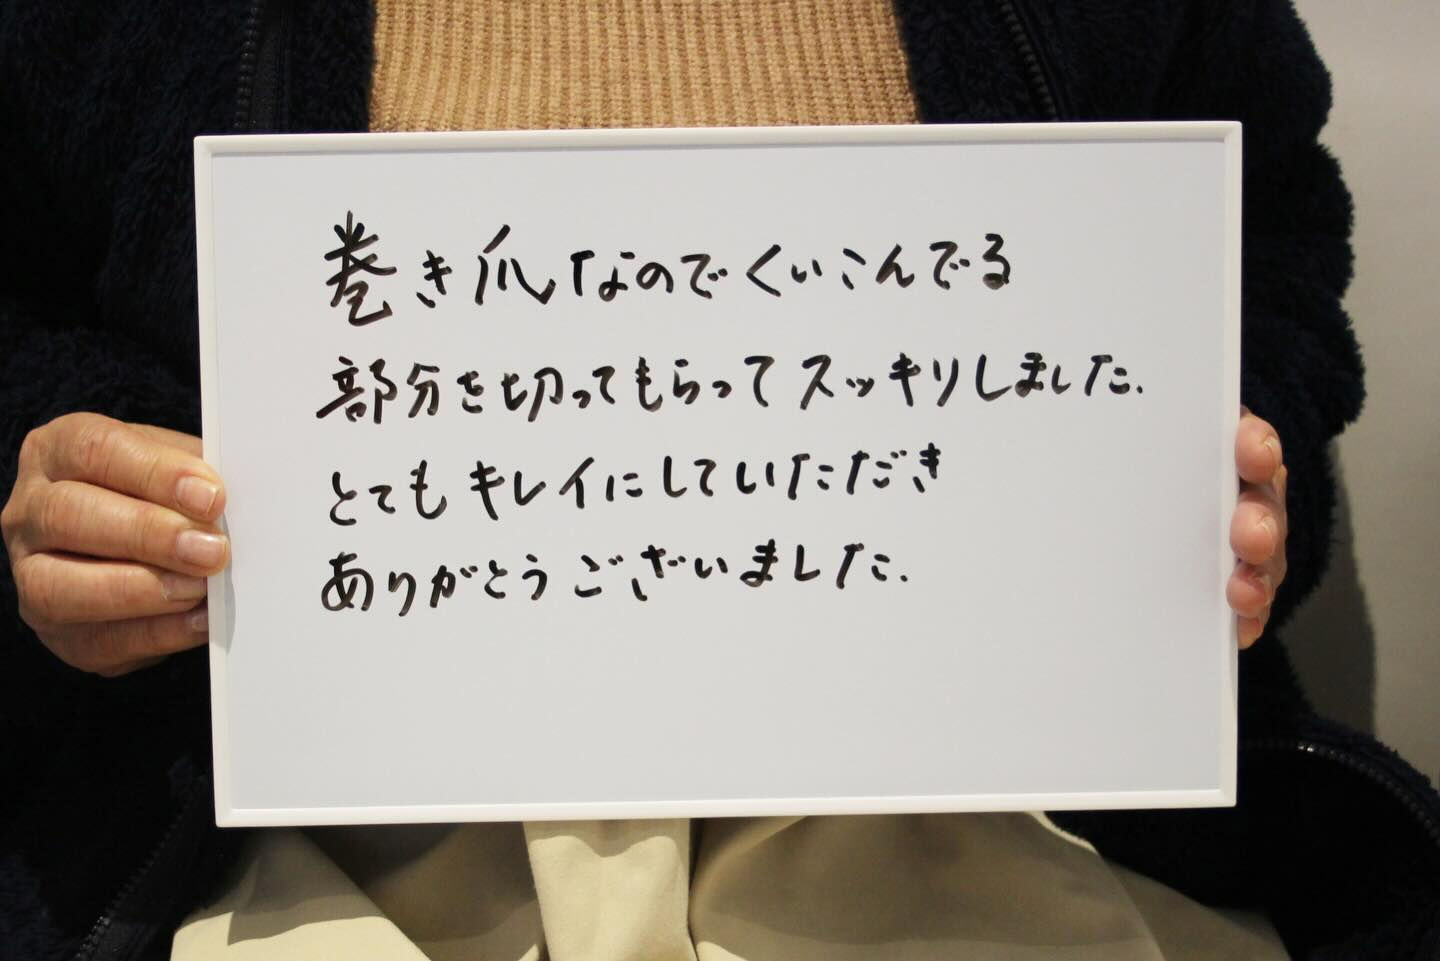 巻き爪なのでくいこんでる
部分を切ってもらってスッキリしました.
とてもキレイにしていただき
ありがとうございました.